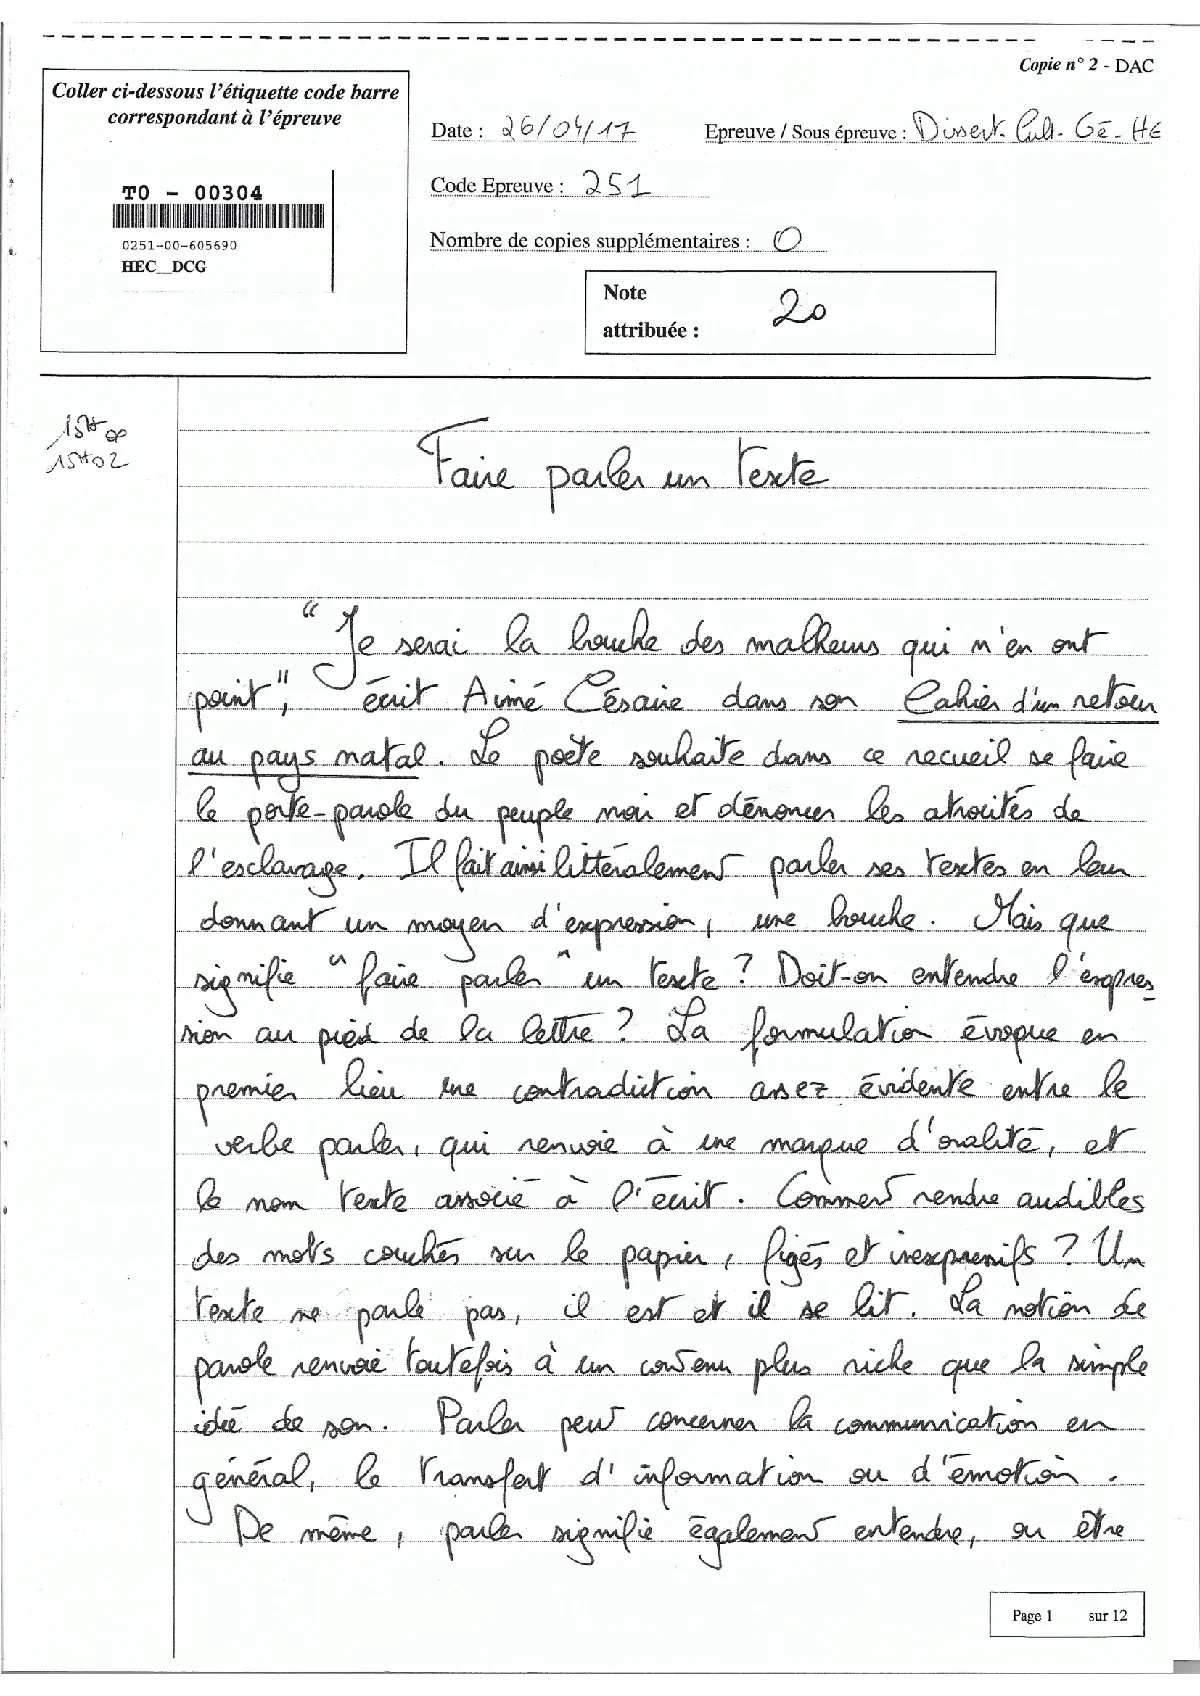 Copie n° 2 - DAC
Coller ci-dessous l'étiquette code barre
correspondant à l'épreuve
TO - 00304
0251-00-605690
HEC__DCG
Date : 26/04/17
Epreuve / Sous épreuve : Dissert. Cult. Gé - HE
Code Epreuve : 251
Nombre de copies supplémentaires : 0
Note
attribuée :
20
15H00
15H02
Faire parler un texte
"Je serai la bouche des malheurs qui n'en ont
point", écrit Aimé Césaire dans son Cahier d'un retour
au pays natal. Le poète souhaite dans ce recueil se faire
le porte-parole du peuple noir et dénoncer les atrocités de
l'esclavage. Il fait ainsi littéralement parler ses textes en leur
donnant un moyen d'expression, une bouche. Mais que
signifie "faire parler" un texte ? Doit-on entendre l'expres
sion au pied de la lettre ? La formulation évoque en
premier lieu une contradiction assez évidente entre le
verbe parler, qui renvoie à une marque d'oralité, et
le nom texte associé à l'écrit. Comment rendre audibles
des mots couchés sur le papier, figés et inexpressifs ? Un
texte ne parle pas, il est et il se lit. La notion de
parole renvoie toutefois à un contenu plus riche que la simple
idée de son. Parler peut concerner la communication en
général, le transfert d'information ou d'émotion.
De même, parler signifie également entendre, ou être
Page 1 sur 12